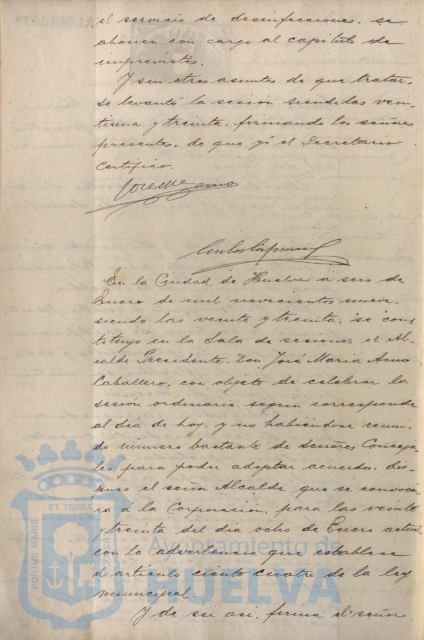 el servicio de desinfecciones, se
abonen con cargo al capítulo de
imprevistos.
Y sin otros asuntos de que tratar,
se levantó la sesión siendo las vein-
tiuna y treinta, firmando los señores
presentes, de que yo el Secretario
certifico.
En la Ciudad de Huelva á seis de
Enero de mil novecientos nueve,
siendo las veinte y treinta, se cons-
tituyó en la Sala de sesiones el Al-
calde Presidente, Don José María Amo
Caballero, con objeto de celebrar la
sesión ordinaria, según corresponde
al día de hoy, y no habiéndose reuni-
do número bastante de Señores Conceja-
les para poder adoptar acuerdos, dis-
puso el señor Alcalde que se convoca-
ra a la Corporación, para las veinte
y treinta del día ocho de Enero actual
con la advertencia que establece
el artículo ciento cuatro de la ley
municipal.
Y de ser así, firma el señor
ET TERRA
PORTUS MARIS
Ayuntamiento de
HUELVA